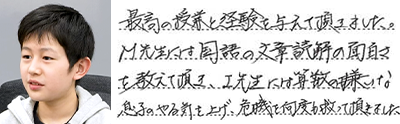 最高の授業と経験を与えて頂きました。
M先生には国語の文章読解の面白さ
を教えて頂き、I先生には算数の嫌いな
息子のやる気を上げ、危機を何度も救って頂きました